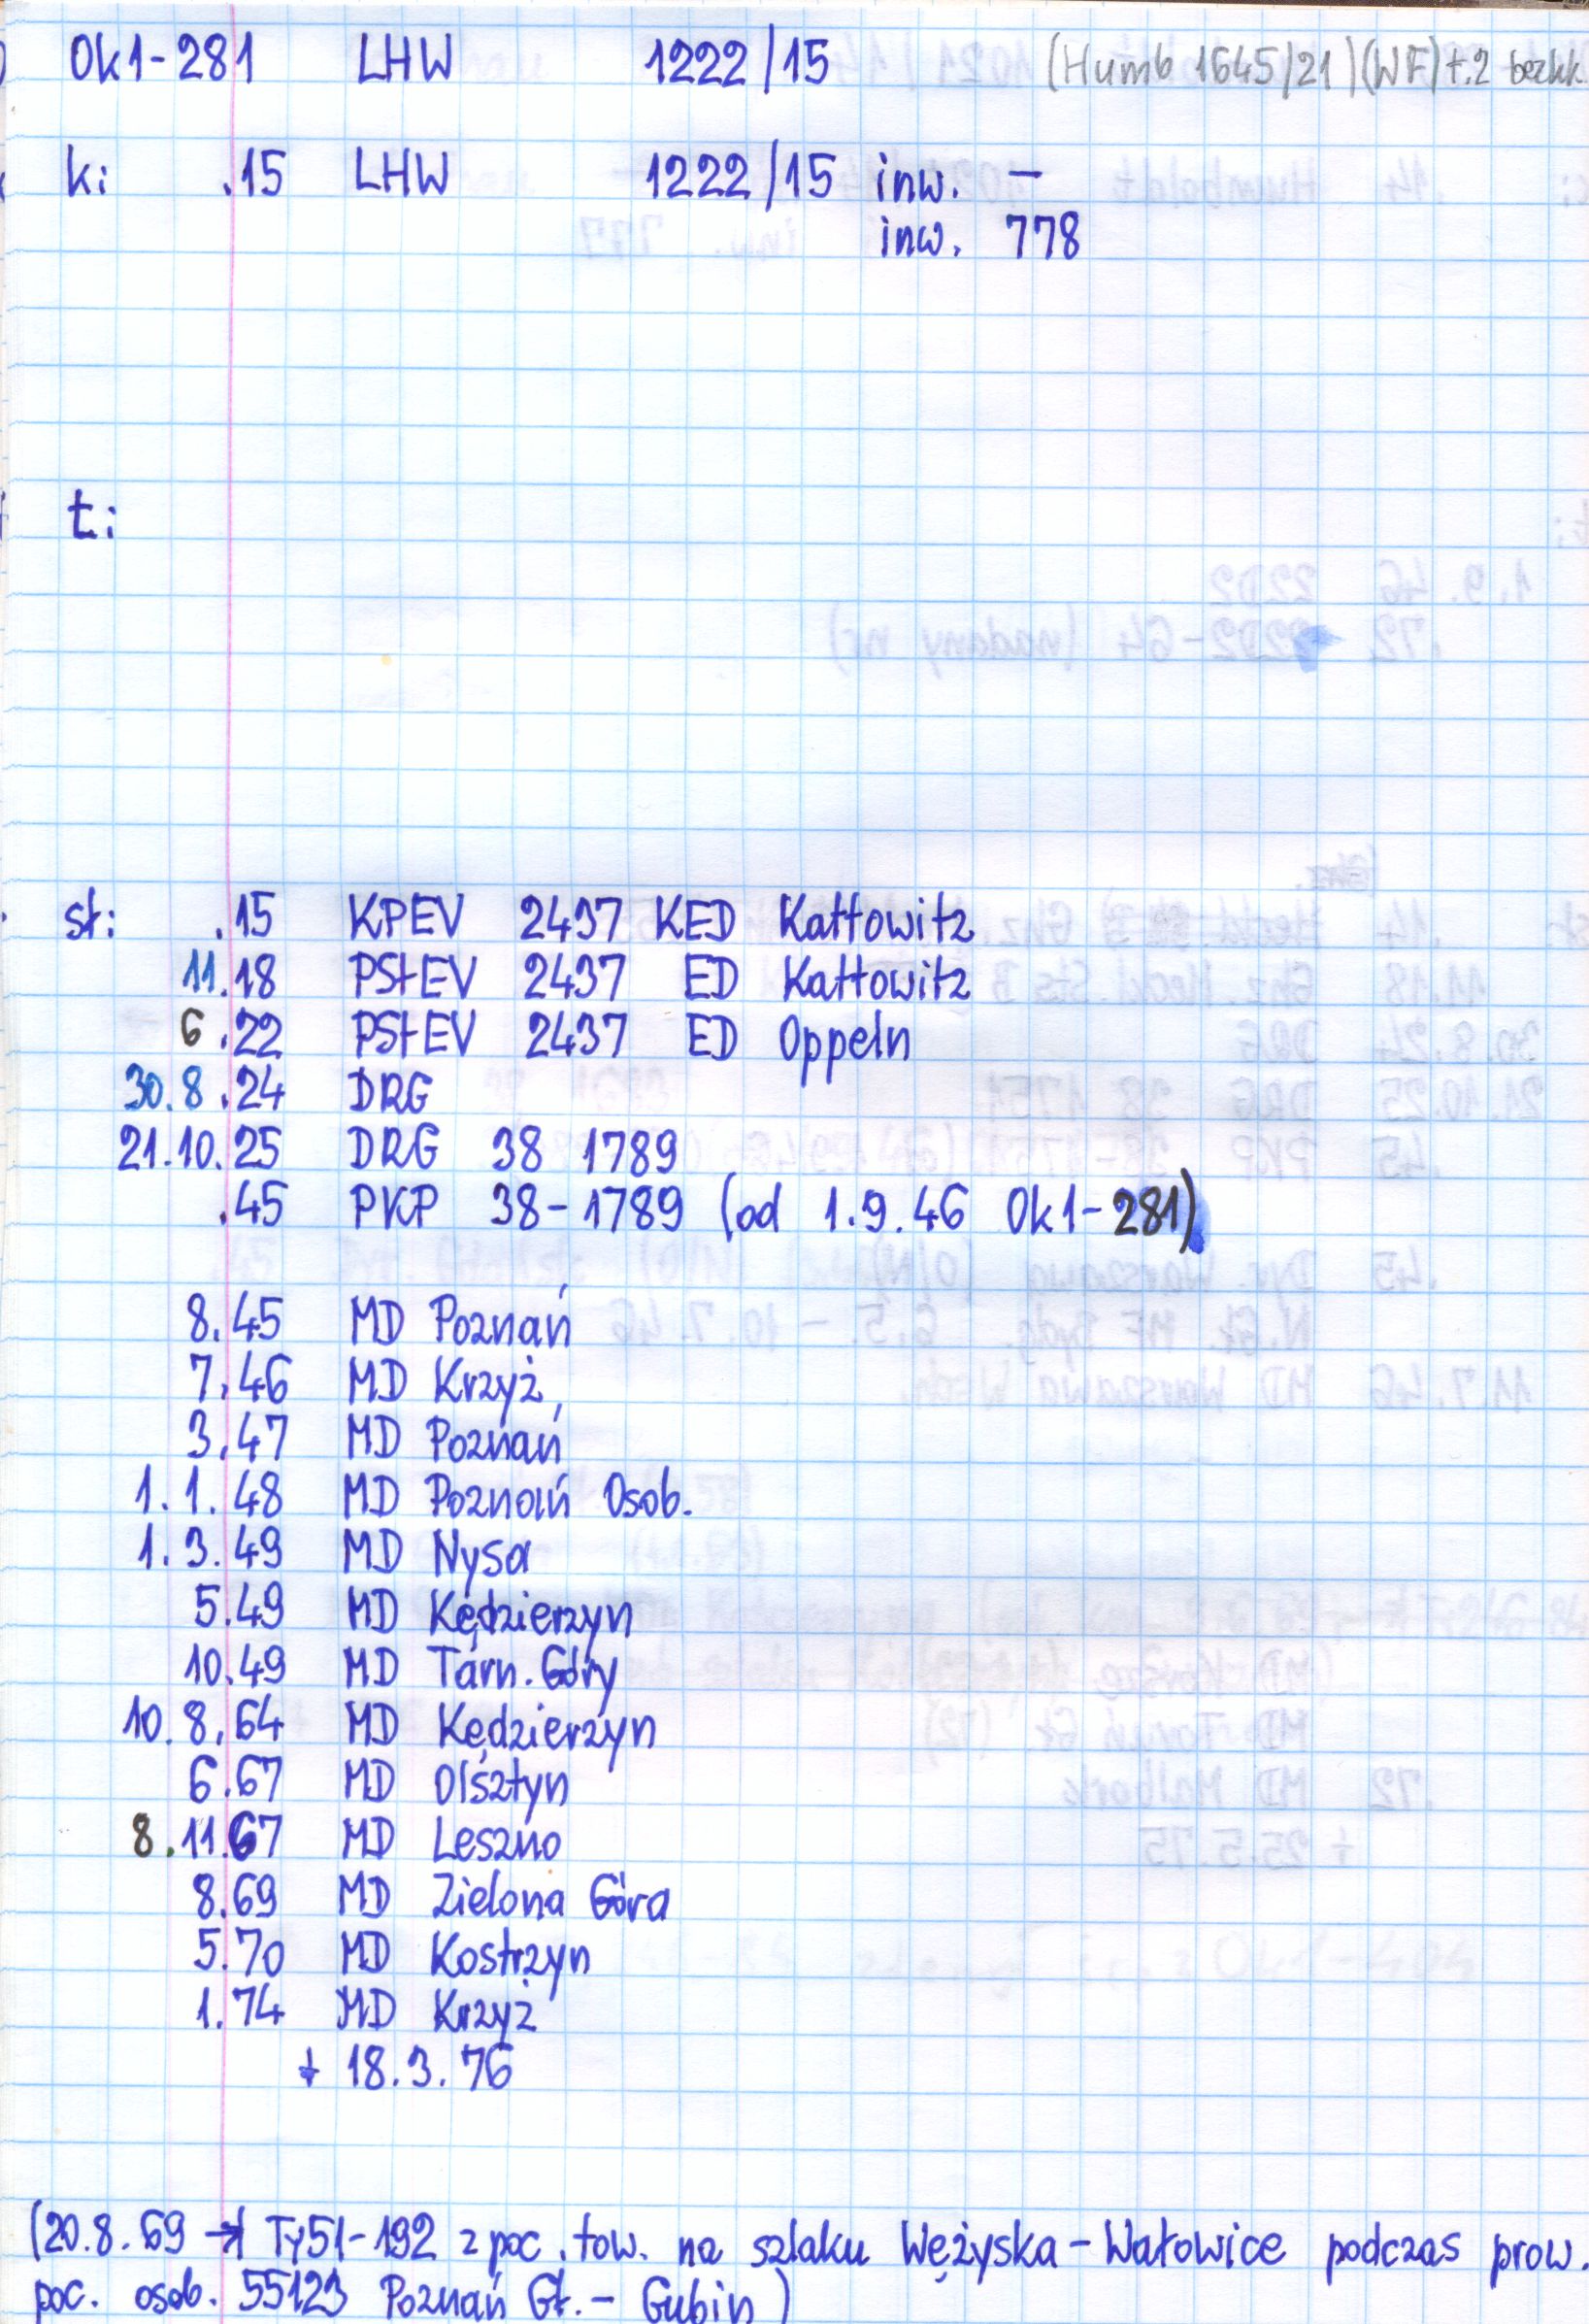 Ok1-281 LHW 1222/15 (Humb 1645/21)(WF) t.2 bez kk.
k: .15 LHW 1222/15 inw. –
inw. 778
t:
st: .15 KPEV 2437 KED Kattowitz
11.18 PStEV 2437 ED Kattowitz
6.22 PStEV 2437 ED Oppeln
30.8.24 DRG
21.10.25 DRG 38 1789
.45 PKP 38-1789 (od 1.9.46 Ok1-281)
8.45 MD Poznań
7.46 MD Krzyż
3.47 MD Poznań
1.1.48 MD Poznań Osob.
1.3.49 MD Nysa
5.49 MD Kędzierzyn
10.49 MD Tarn. Góry
10.8.64 MD Kędzierzyn
6.67 MD Olsztyn
8.11.67 MD Leszno
8.69 MD Zielona Góra
5.70 MD Kostrzyn
1.74 MD Krzyż
+ 18.3.76
(20.8.69 Ty51-192 z poc. tow. na szlaku Wężyska - Wałowice podczas prow.
poc. osob. 55123 Poznań Gł. - Gubin)